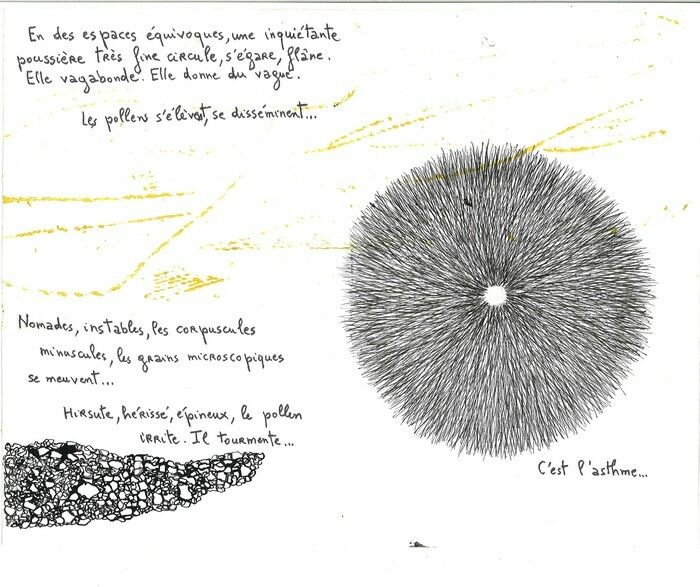 En des espaces équivoques, une inquiétante
poussière très fine circule, s'égare, flâne.
Elle vagabonde. Elle donne du vague.
Les pollens s'élèvent, se disséminent...
Nomades, instables, les corpuscules
minuscules, les grains microscopiques
se meuvent...
Hirsute, hérissé, épineux, le pollen
irrite. Il tourmente...
C'est l'asthme...